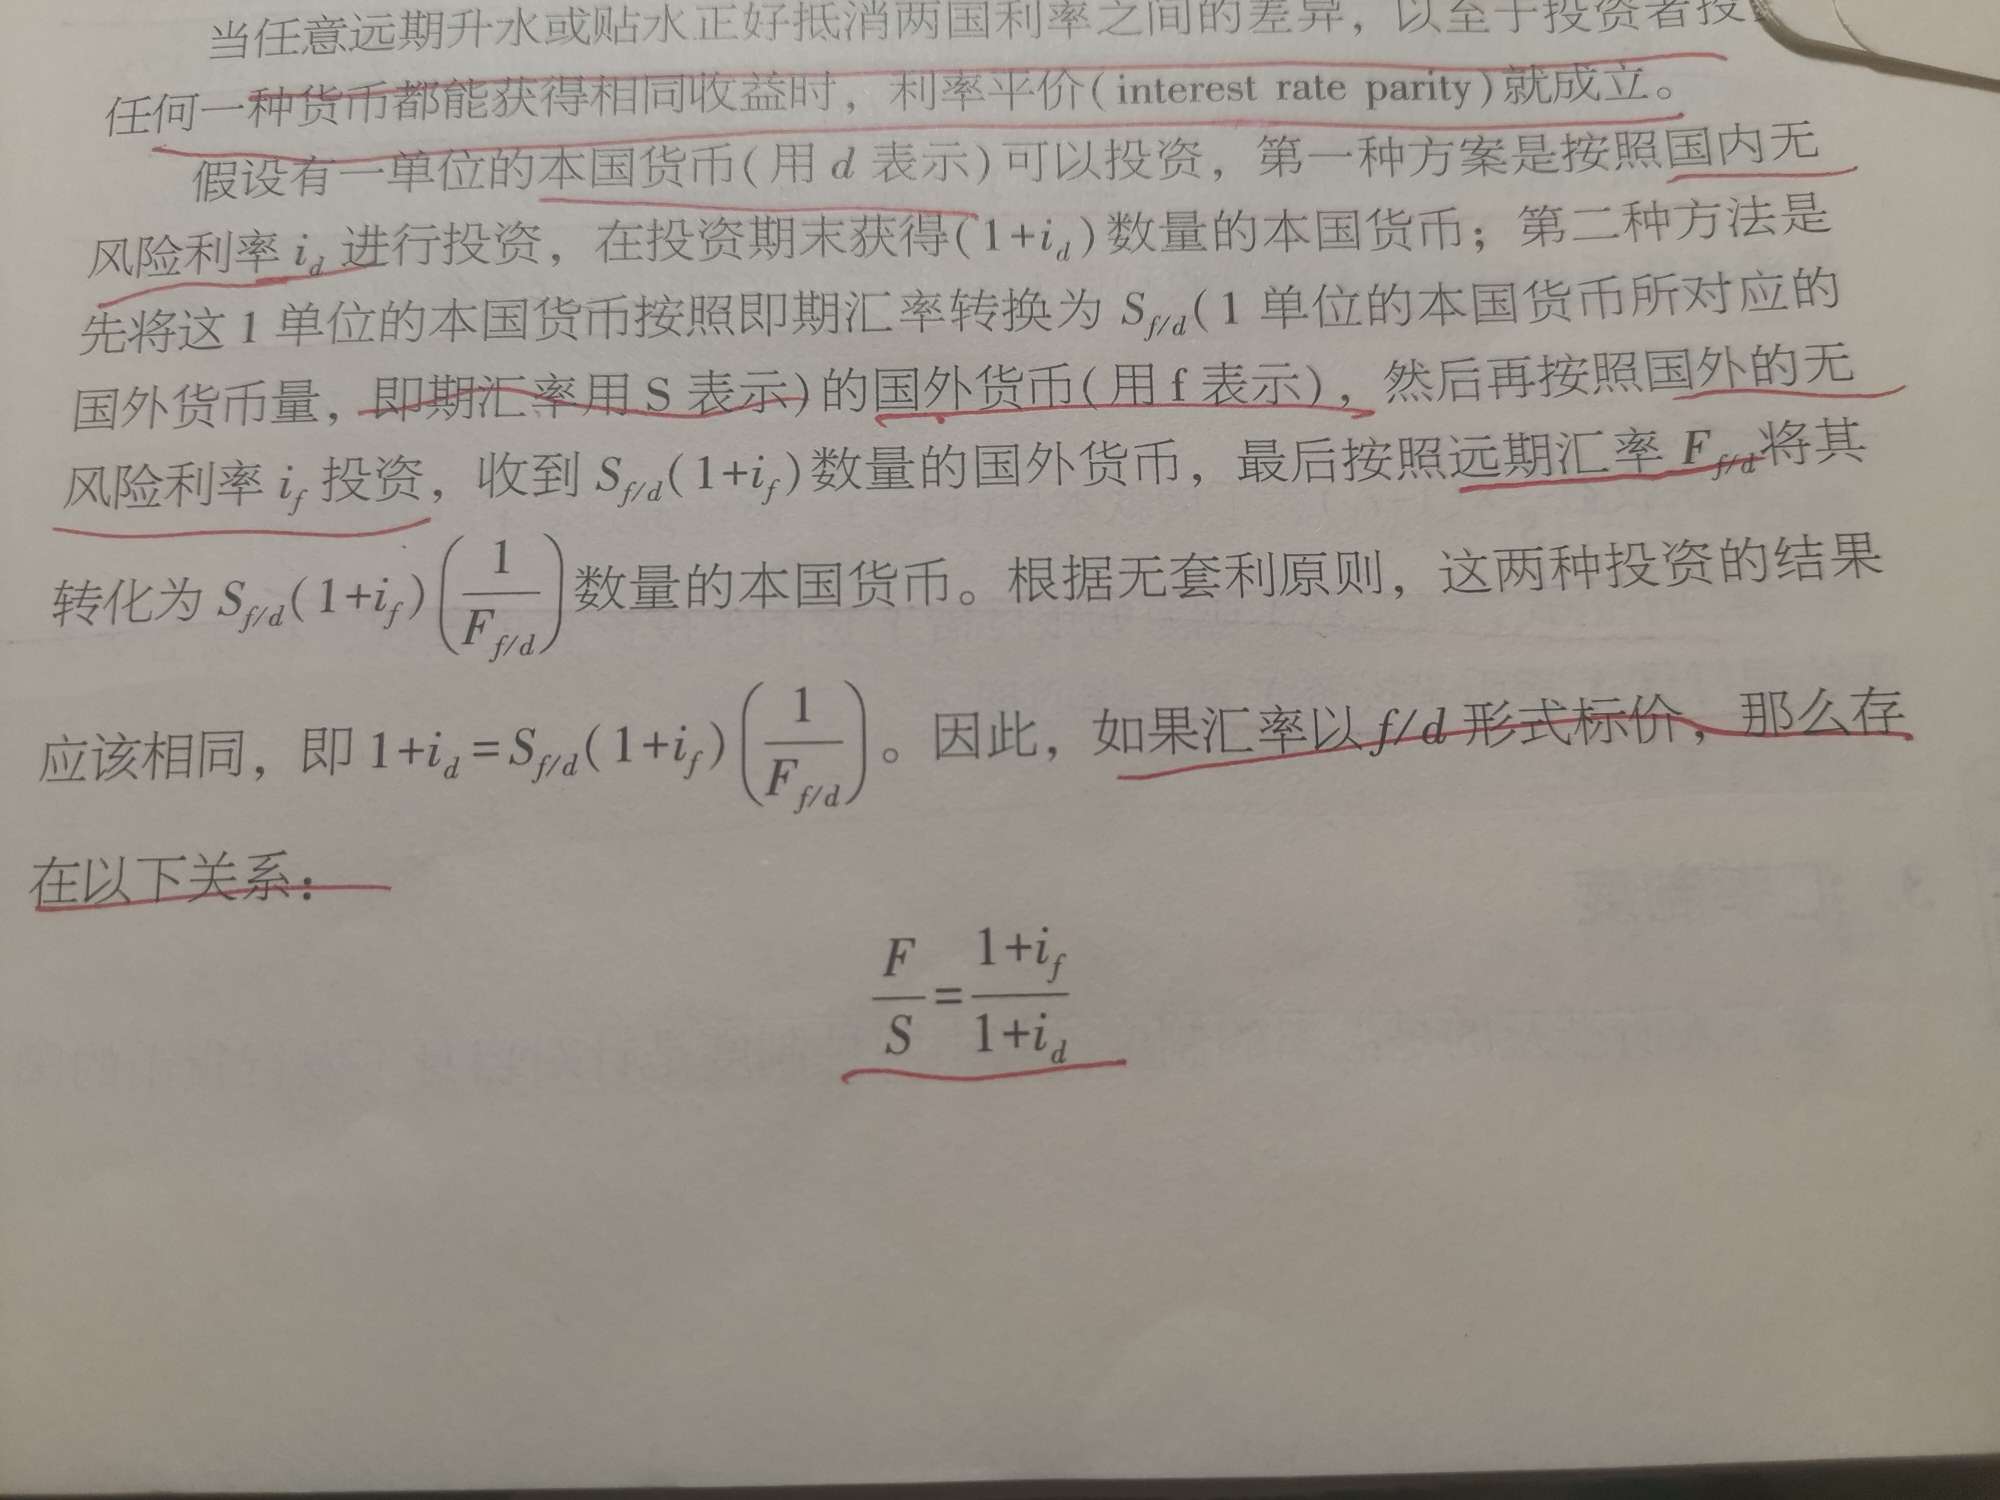 当任意远期升水或贴水正好抵消两国利率之间的差异，以至于投资者投
任何一种货币都能获得相同收益时，利率平价(interest rate parity)就成立。
假设有一单位的本国货币(用 d 表示)可以投资，第一种方案是按照国内无
风险利率 i_d 进行投资，在投资期末获得(1+i_d)数量的本国货币；第二种方法是
先将这 1 单位的本国货币按照即期汇率转换为 S_{f/d}(1 单位的本国货币所对应的
国外货币量，即期汇率用 S 表示)的国外货币(用 f 表示)，然后再按照国外的无
风险利率 i_f 投资，收到 S_{f/d}(1+i_f)数量的国外货币，最后按照远期汇率 F_{f/d}将其
转化为 S_{f/d}(1+i_f)(1/F_{f/d})数量的本国货币。根据无套利原则，这两种投资的结果
应该相同，即 1+i_d=S_{f/d}(1+i_f)(1/F_{f/d})。因此，如果汇率以 f/d 形式标价，那么存
在以下关系：
F/S=(1+i_f)/(1+i_d)